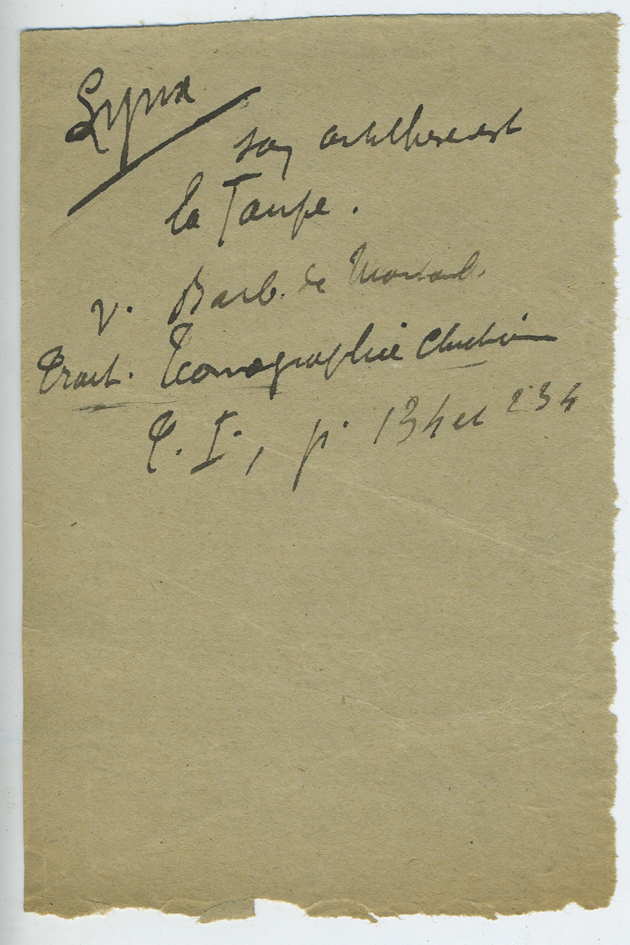 Lynx
son antithèse est
la Taupe.
V. Barb. de Montault.
Trait. Iconographie Chrétien
T. I, p. 134 et 234